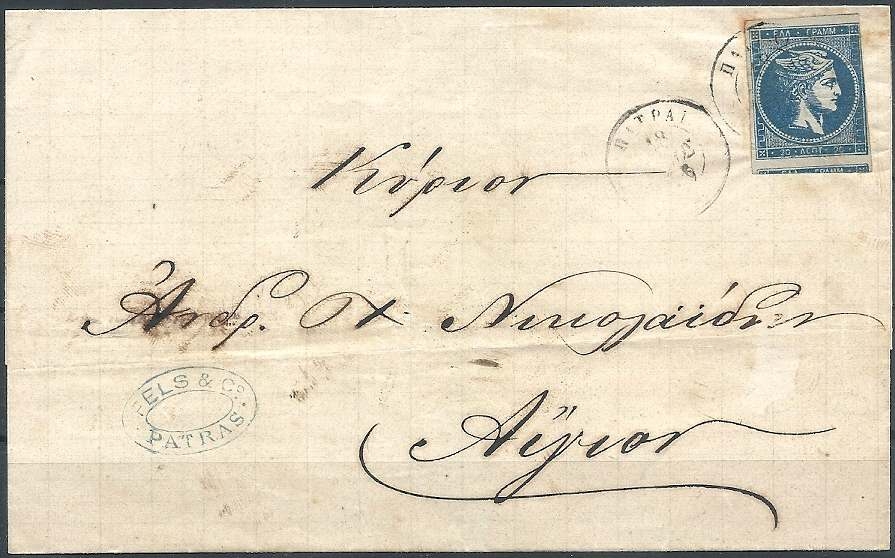 ΕΛΛ ΓΡΑΜΜ
20 ΛΕΠΤ 20
ΕΛΛ ΓΡΑΜΜ
ΠΑΤΡΑΙ
Κύριον
Ἀνδρ. Χ Νικολαΐδην
Αἴγιον
FELS & Co.
PATRAS